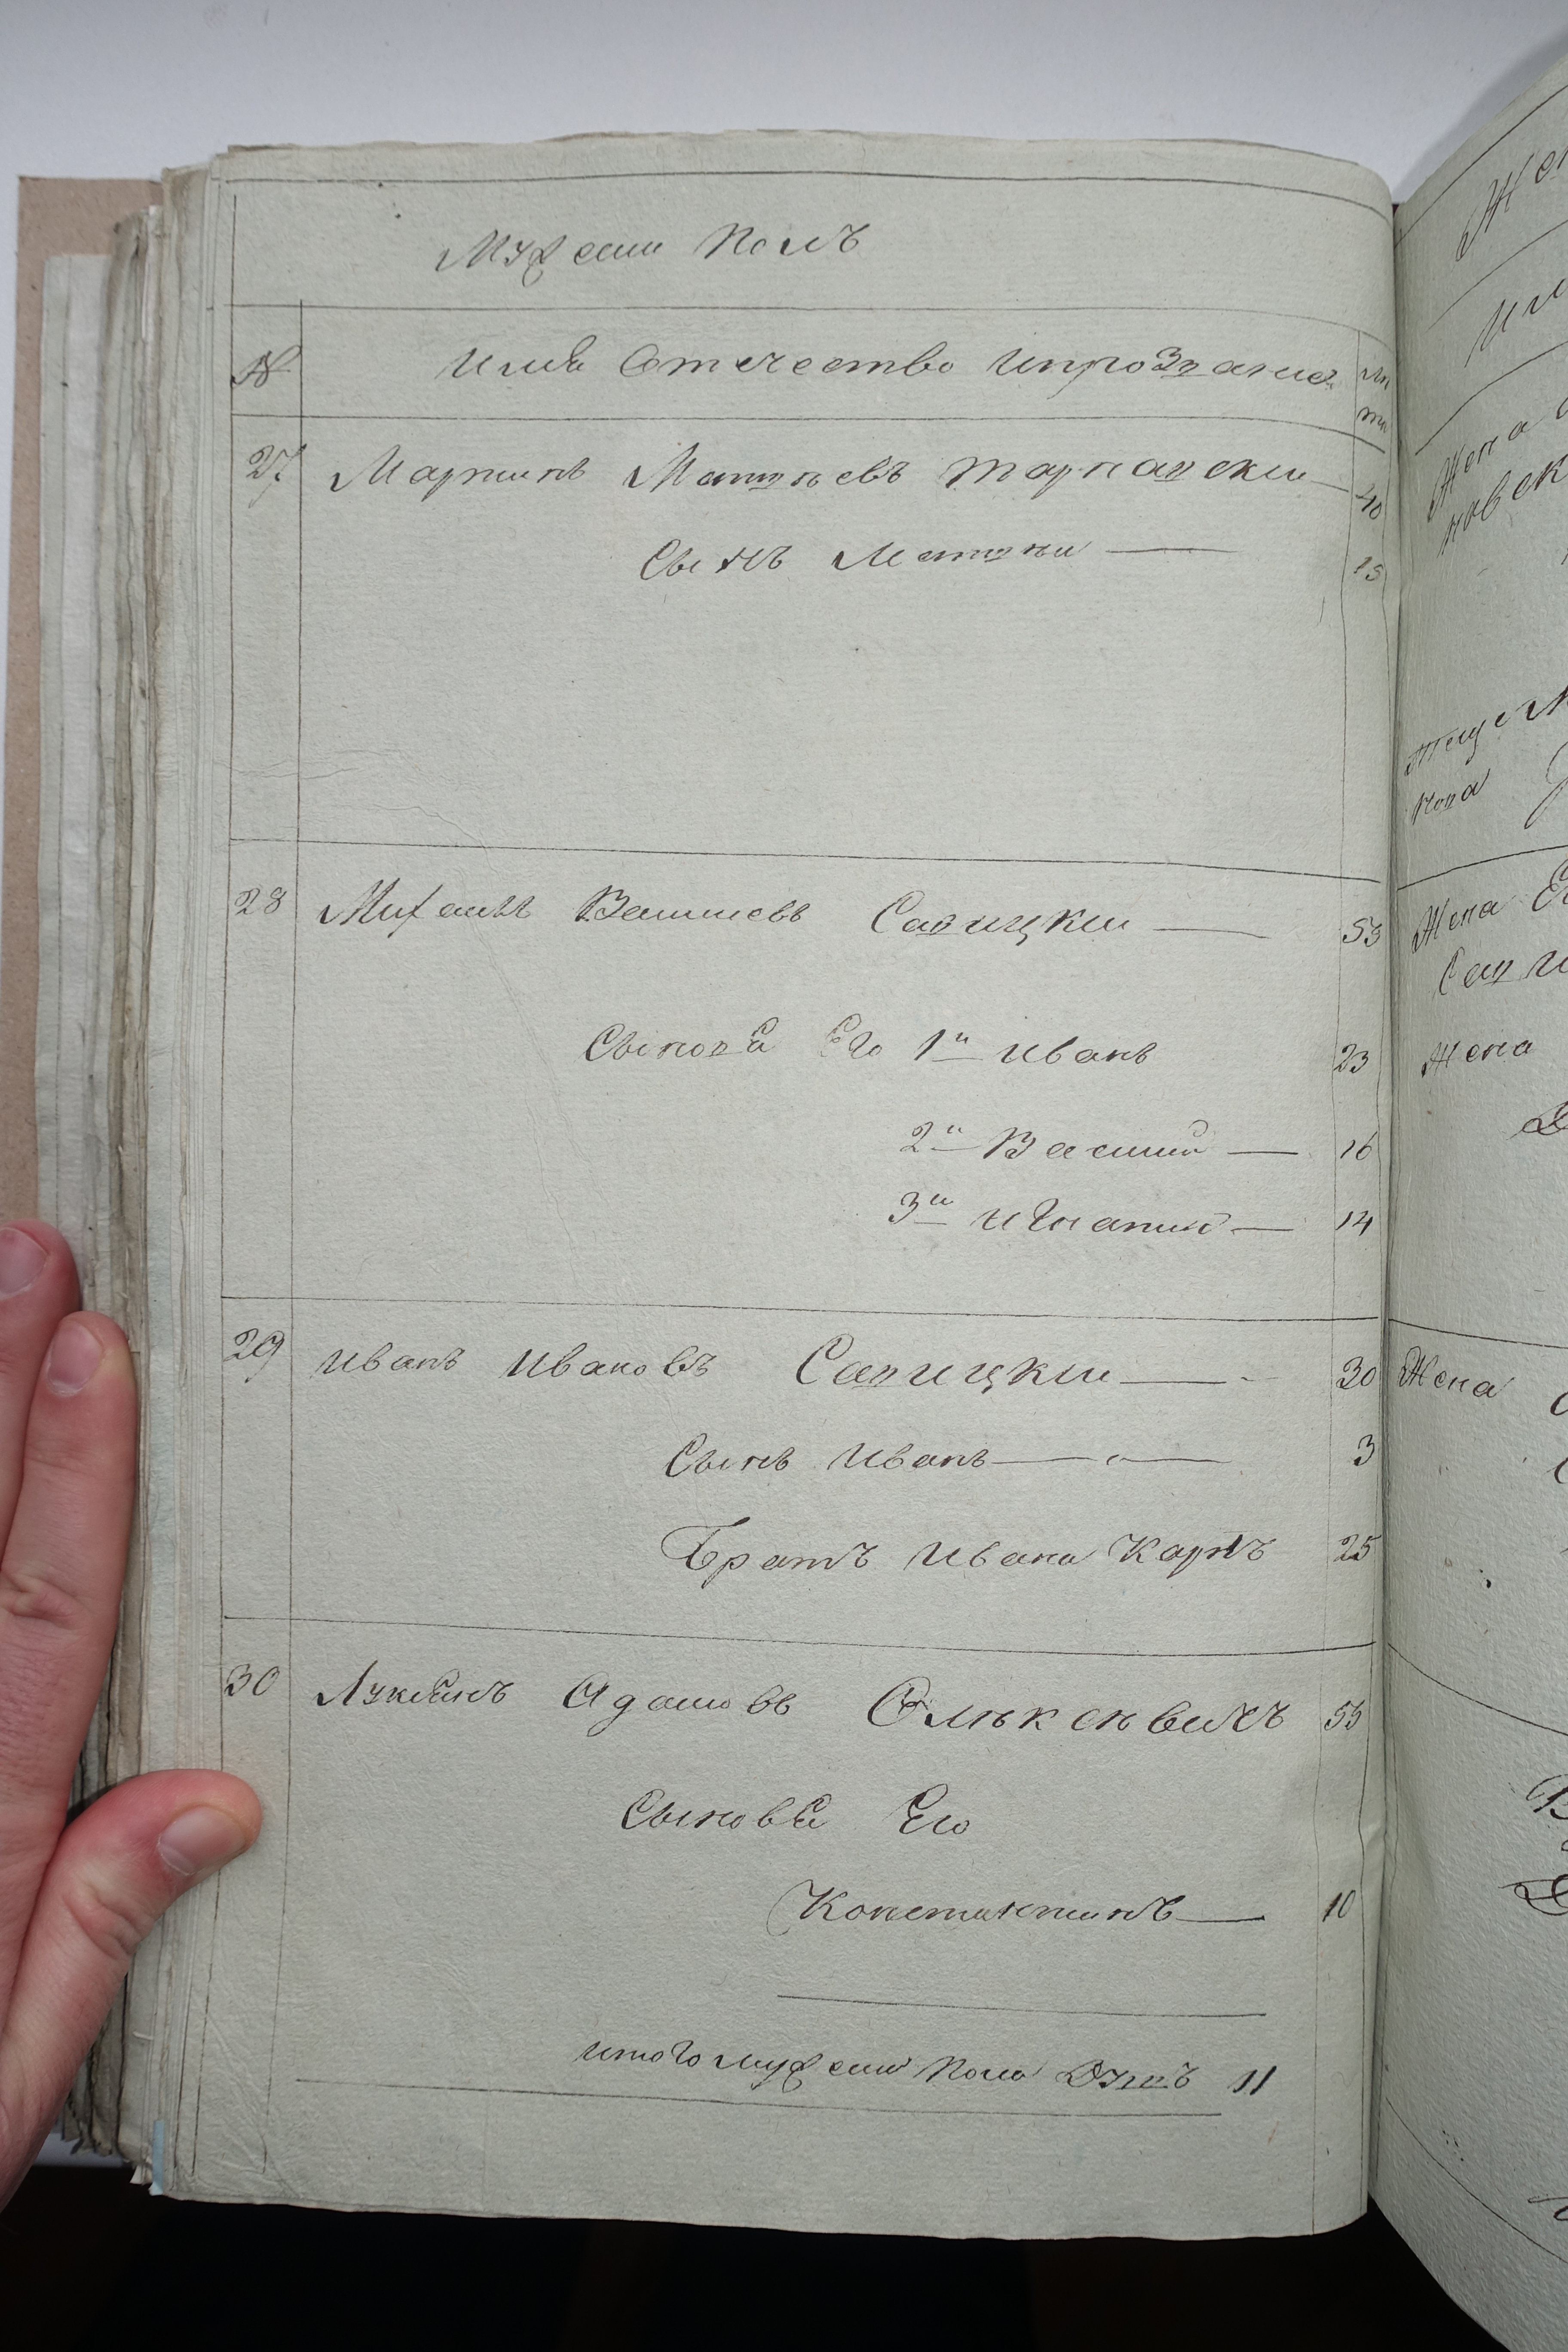 Мужеска Полъ
№ Имя Отечество Ипрозвание лѣ
та
27 Мартинъ Матвѣевъ Тарнавски — 40
Сынъ Матвѣи — 15
28 Михаилъ Васильевъ Савицкии — 53
Сыновя Его 1й Иванъ 23
2й Василий — 16
3й Игнатий — 14
29 Иванъ Ивановъ Савицкии — 30
Сынъ Иванъ — 3
Братъ Ивана Карпъ 25
30 Лукянъ Адамовъ 55
Сыновя Его
Константинъ — 10
итого мужеска Пола Душъ 11
Жена
Жена
Жена